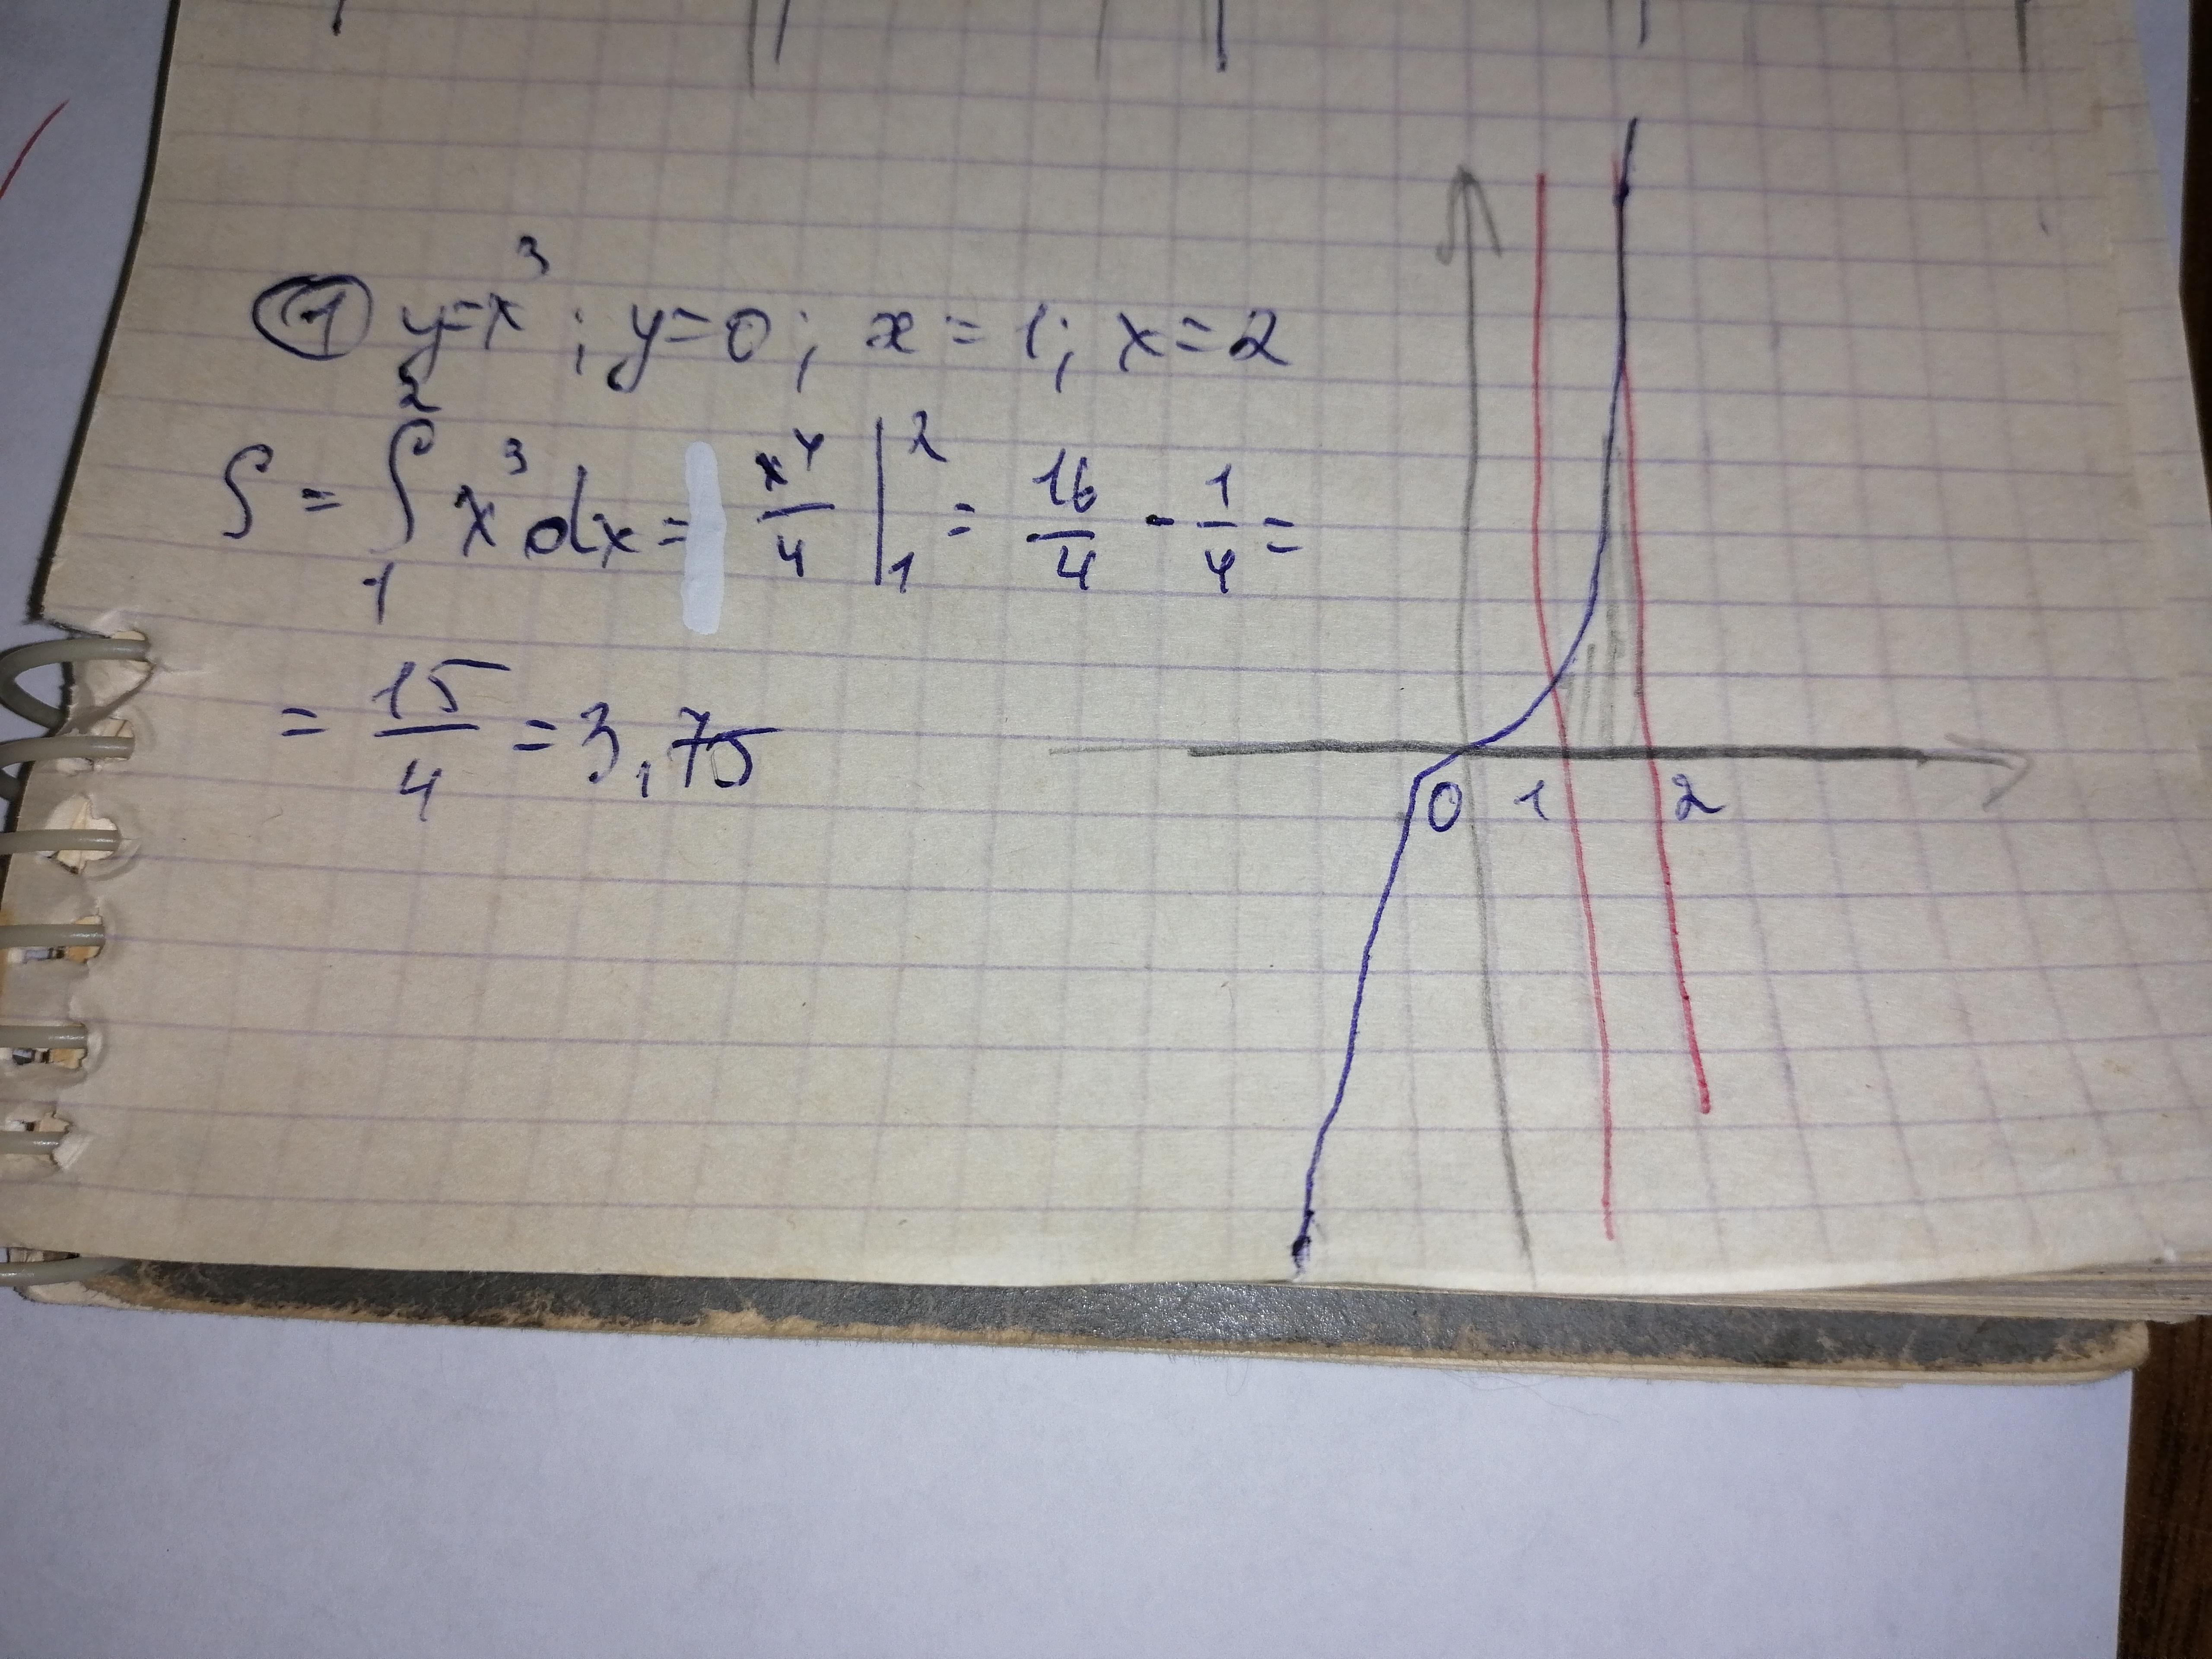 ① y=x³; y=0; x=1; x=2
S = ∫₁² x³dx = x⁴/4 |₁² = 16/4 - 1/4 =
= 15/4 = 3,75
0 1 2